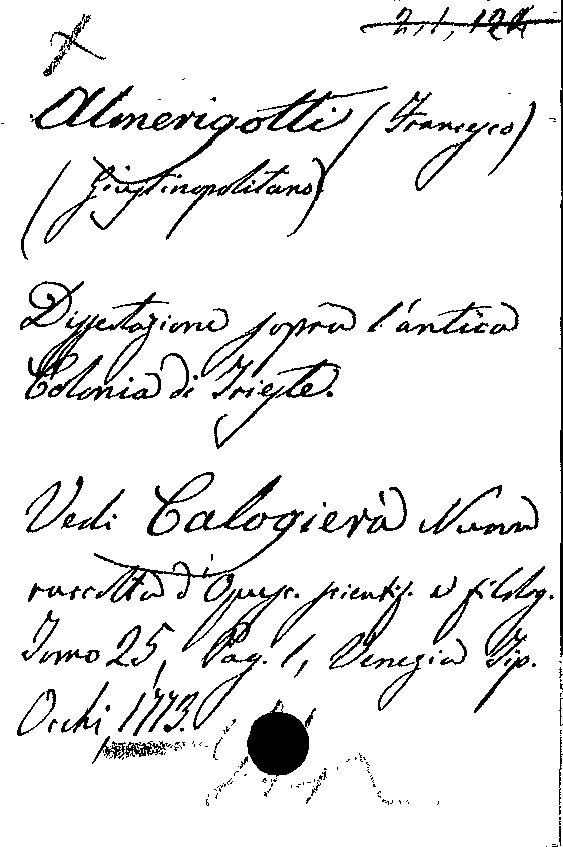 Almerigotti (Francesco)
(Giustinopolitano)
Dissertazione sopra l'antica
Colonia di Trieste.
Vedi Calogierà Nuova
raccolta d'Opusc. scientif. e filolog.
Tomo 25, Pag. 1, Venezia Tip.
Occhi 1773.